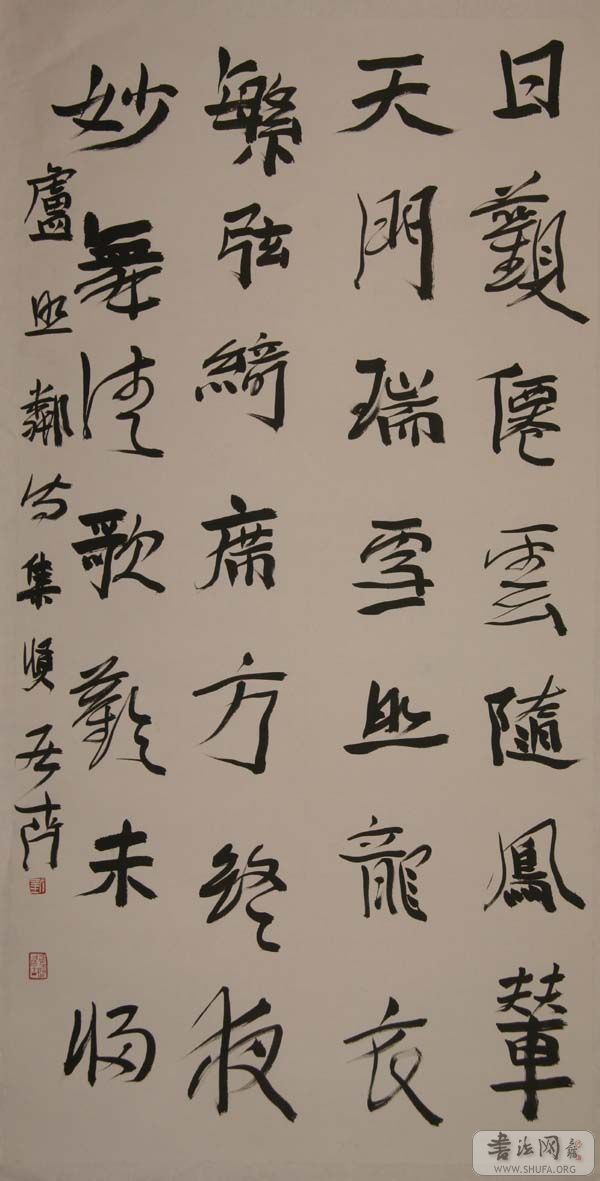 日觀僊雲隨鳳輦
天門瑞雪照龍衣
繁弦綺席方終夜
妙舞清歌歡未歸
盧照鄰詩集賢
書法网
WWW.SHUFA.ORG